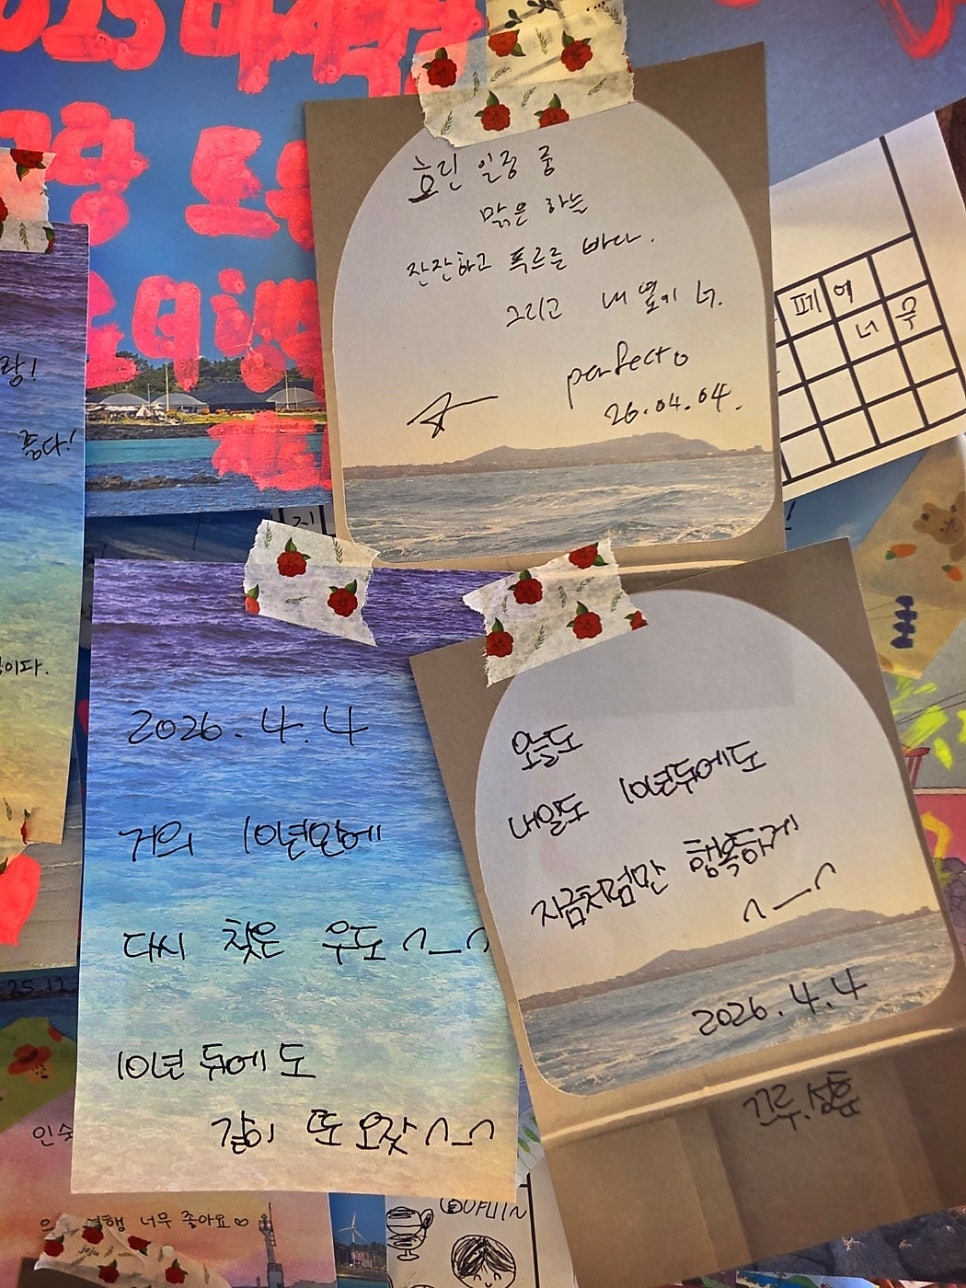 흐린 일정 중
맑은 하늘
잔잔하고 푸르른 바다.
그리고 내 옆에 너.
perfecto
26.04.04.
랑!
좋다!
이다.
페 어
너 무
2026.4.4
거의 10년만에
다시 찾은 우도 ^_^
10년 뒤에도
같이 또 오잣 ^_^
오늘도
내일도 10년뒤에도
지금처럼만 행복하게
^_^
2026.4.4
끼루.성훈
25.12
인숙
여행 너무 좋아요♡
jeju